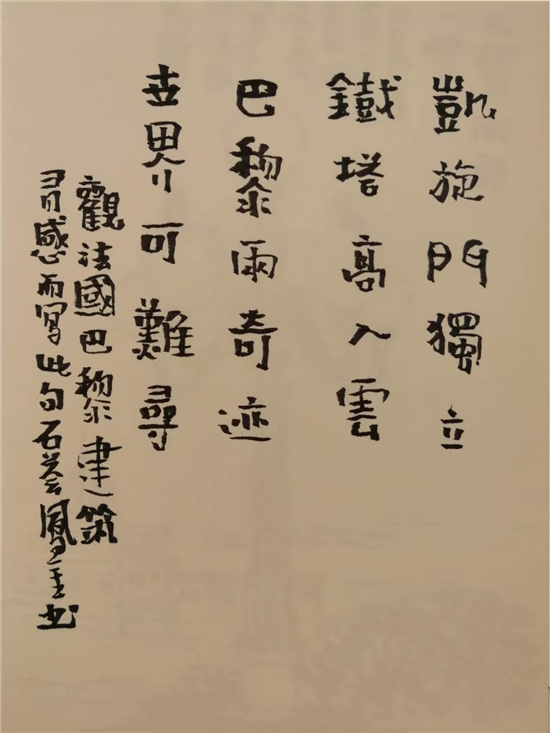 凱旋門獨立
鐵塔高入雲
巴黎兩奇迹
世界可難尋
觀法國巴黎建築
有感而寫此句石荟鳳书